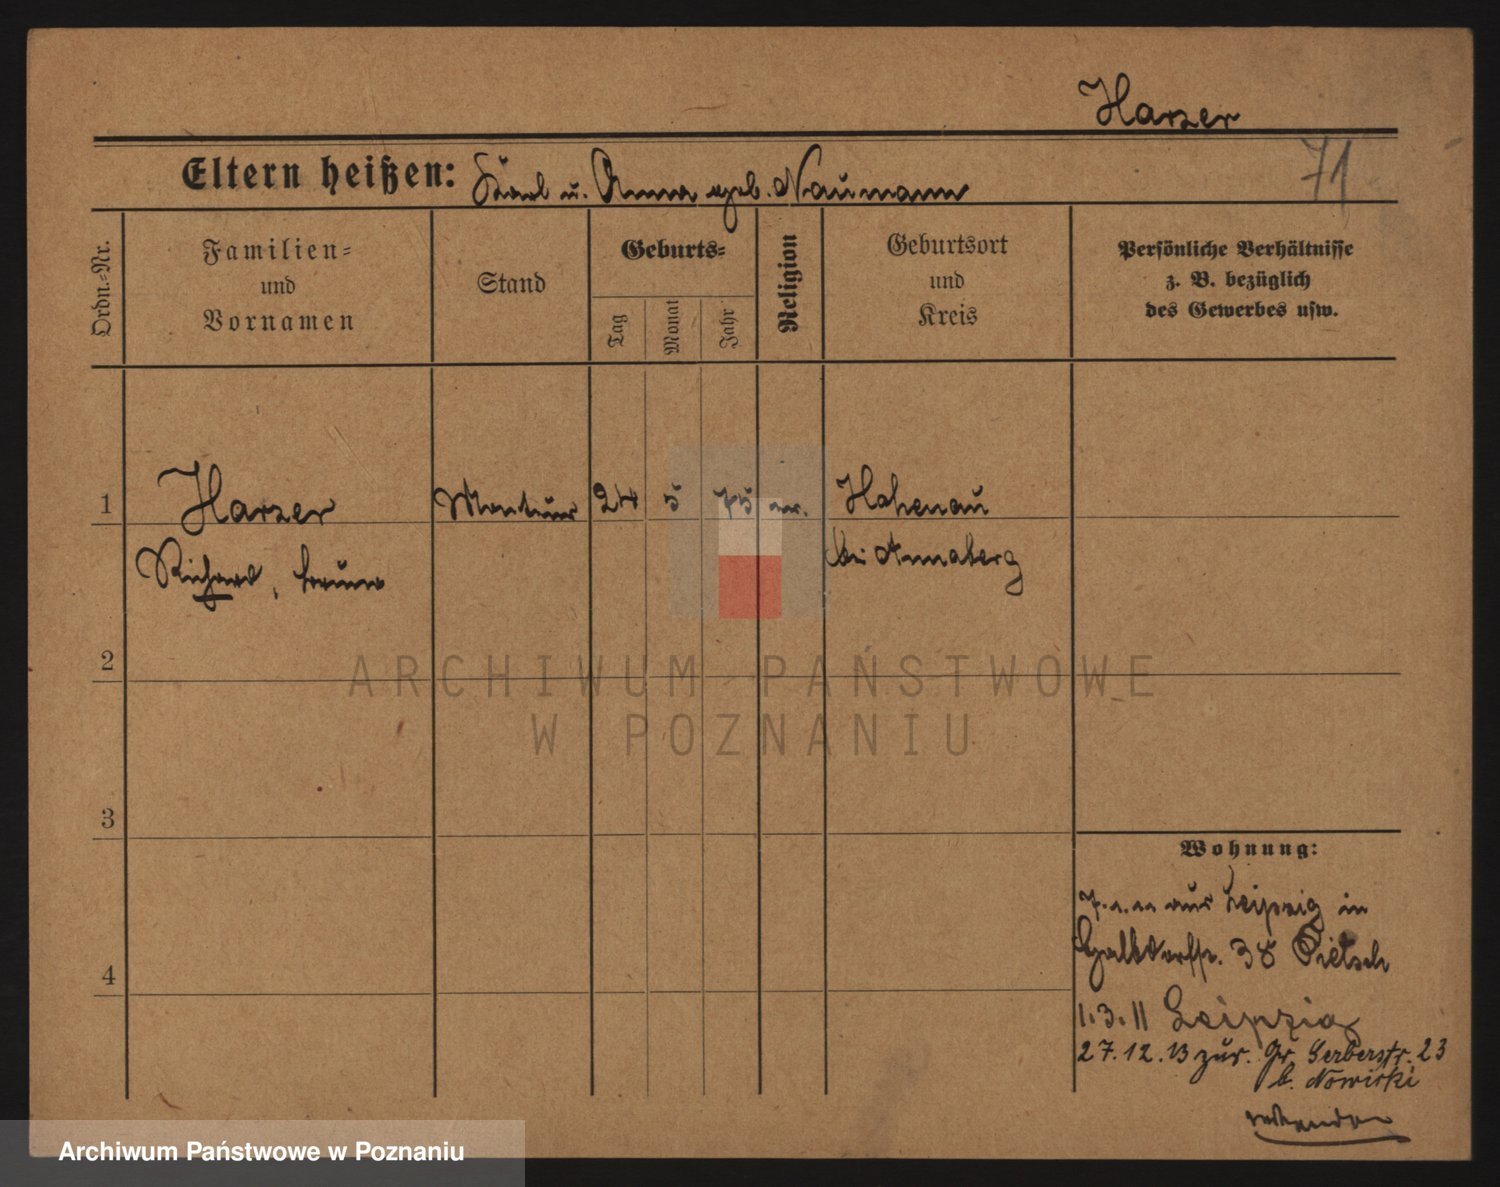 Harzer
71
Eltern heißen: Karl u. Anna geb. Naumann
Ordn.-Nr.
Familien-
und
Vornamen
Stand
Geburts-
Tag
Monat
Jahr
Religion
Geburtsort
und
Kreis
Persönliche Verhältnisse
z. B. bezüglich
des Gewerbes usw.
1
Harzer
Monteur
24
5
75
ev.
Hohenau
Richard, bruno
bei Annaberg
2
ARCHIWUM PAŃSTWOWE
W POZNANIU
3
Wohnung:
7.1.11 aus Leipzig in
38 Pietsch
4
1.3.11 Leipzig
27.12.13 zur. Gr. Gerberstr. 23
b. Nowicki
Archiwum Państwowe w Poznaniu